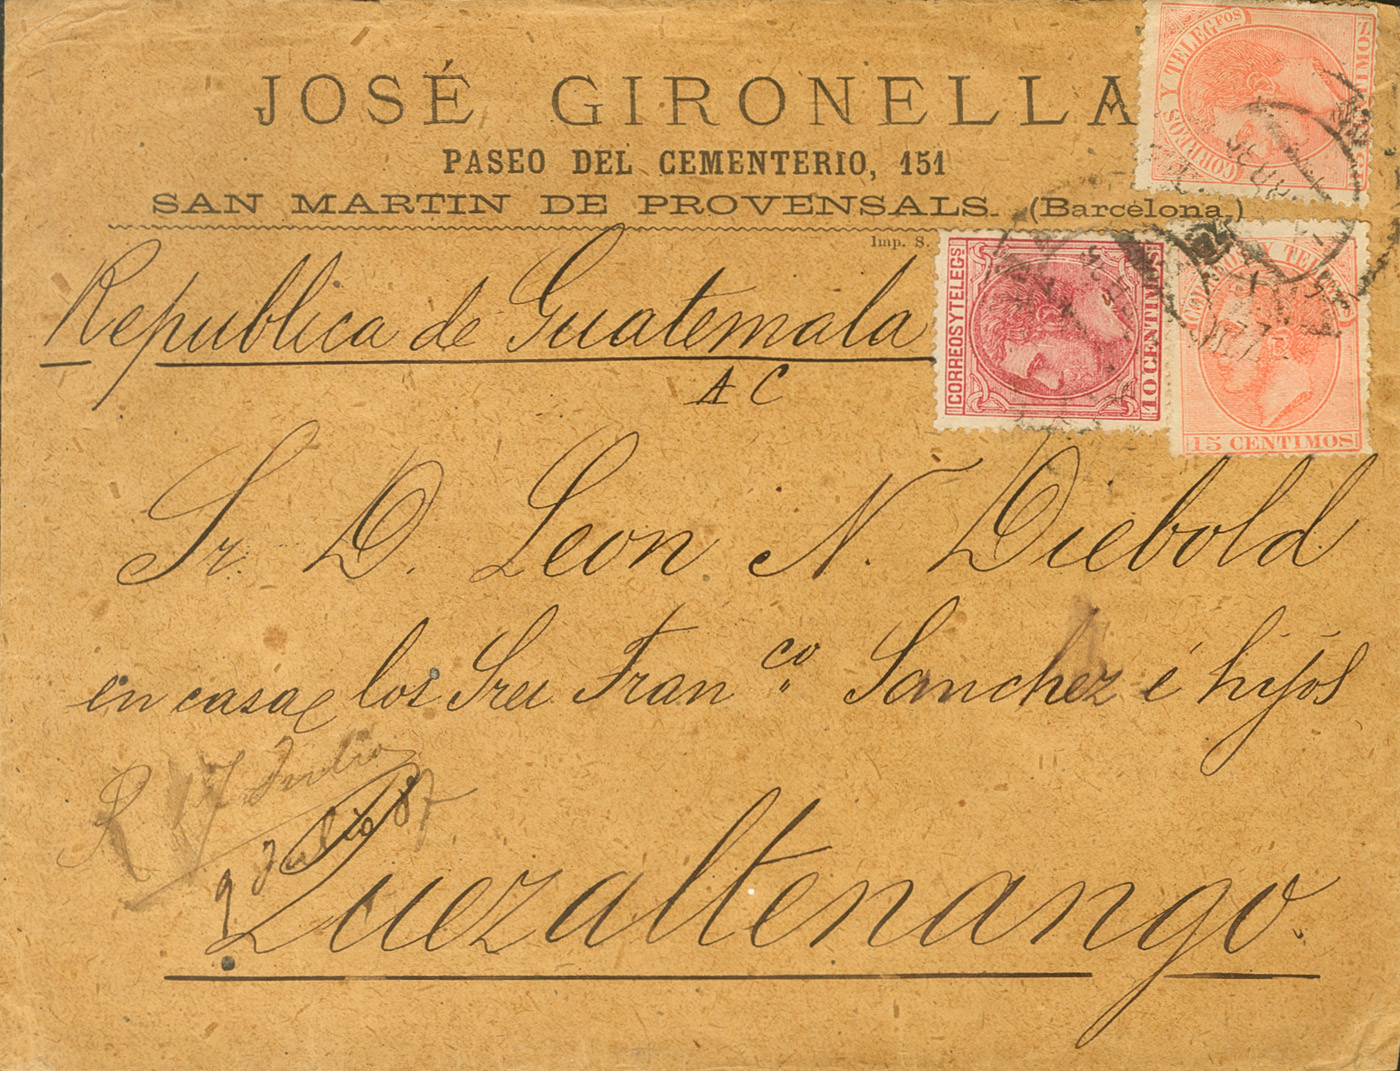 JOSÉ GIRONELLA
PASEO DEL CEMENTERIO, 151
SAN MARTIN DE PROVENSALS. (Barcelona.)
Imp. S.
CORREOS Y TELEGFOS
CENTIMOS
CORREOS Y TELEGS
10 CENTIMOS
15 CENTIMOS
Republica de Guatemala
A C
Sr. D. Leon N. Diebold
en casa los Sres Franco Sanchez é hijos
R 17 Julio
9 Julio 87
Quezaltenango.